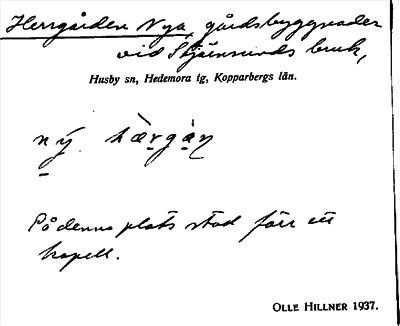 Herrgården Nya, gårdsbyggnader
vid Stjärnsunds bruk,
Husby sn, Hedemora tg, Kopparbergs län.
ný hæ̀rgàn
På denna plats stod förr ett
kapell.
OLLE HILLNER 1937.